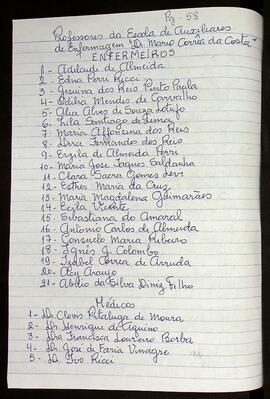 Pg. 58
Professores da Escola de Auxiliares
de Enfermagem "Dr. Mario Corrêa da Costa"
ENFERMEIROS
1 - Adelaide de Almeida
2 - Edna Perri Ricci
3 - Jesuina dos Reis Pinto Paula
4 - Odilia Mendes de Carvalho
5 - Olга Alves de Souza Lotufo
6 - Leila Santiago de Lima
7 - Maria Affonsina dos Reis
8 - Dirce Fernandes dos Reis
9 - de Almeida Perri
10 - Maria José Jaques Saldanha
11 - Clara Sacra Gomes Levi
12 - Esther Maria da Cruz
13 - Maria Magdalena Guimarães
14 - Ecila Vicente
15 - Sebastiana do Amaral
16 - Antonio Carlos de Almeida
17 - Consuelo Maria Ribeiro
18 - Ignês J. Colombo
19 - Isabel Correa de Arruda
20 - Araujo
21 - Abilio da Silva Diniz Filho
Médicos
1 - Dr. Clovis Pitaluga de Moura
2 - Dr. Henrique de Aquino
3 - Dra Francisca Loureiro Borba
4 - Dr. José de Faria Vinagre
5 - Dr. Ivo Ricci